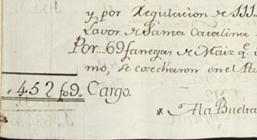 y por Regulacion de 111
Lavor de Santa Catalina
Por 69 fanegas de Maiz q.e
mo, se cosecharon en el
452 fo9. Cargo.
A la Buelta